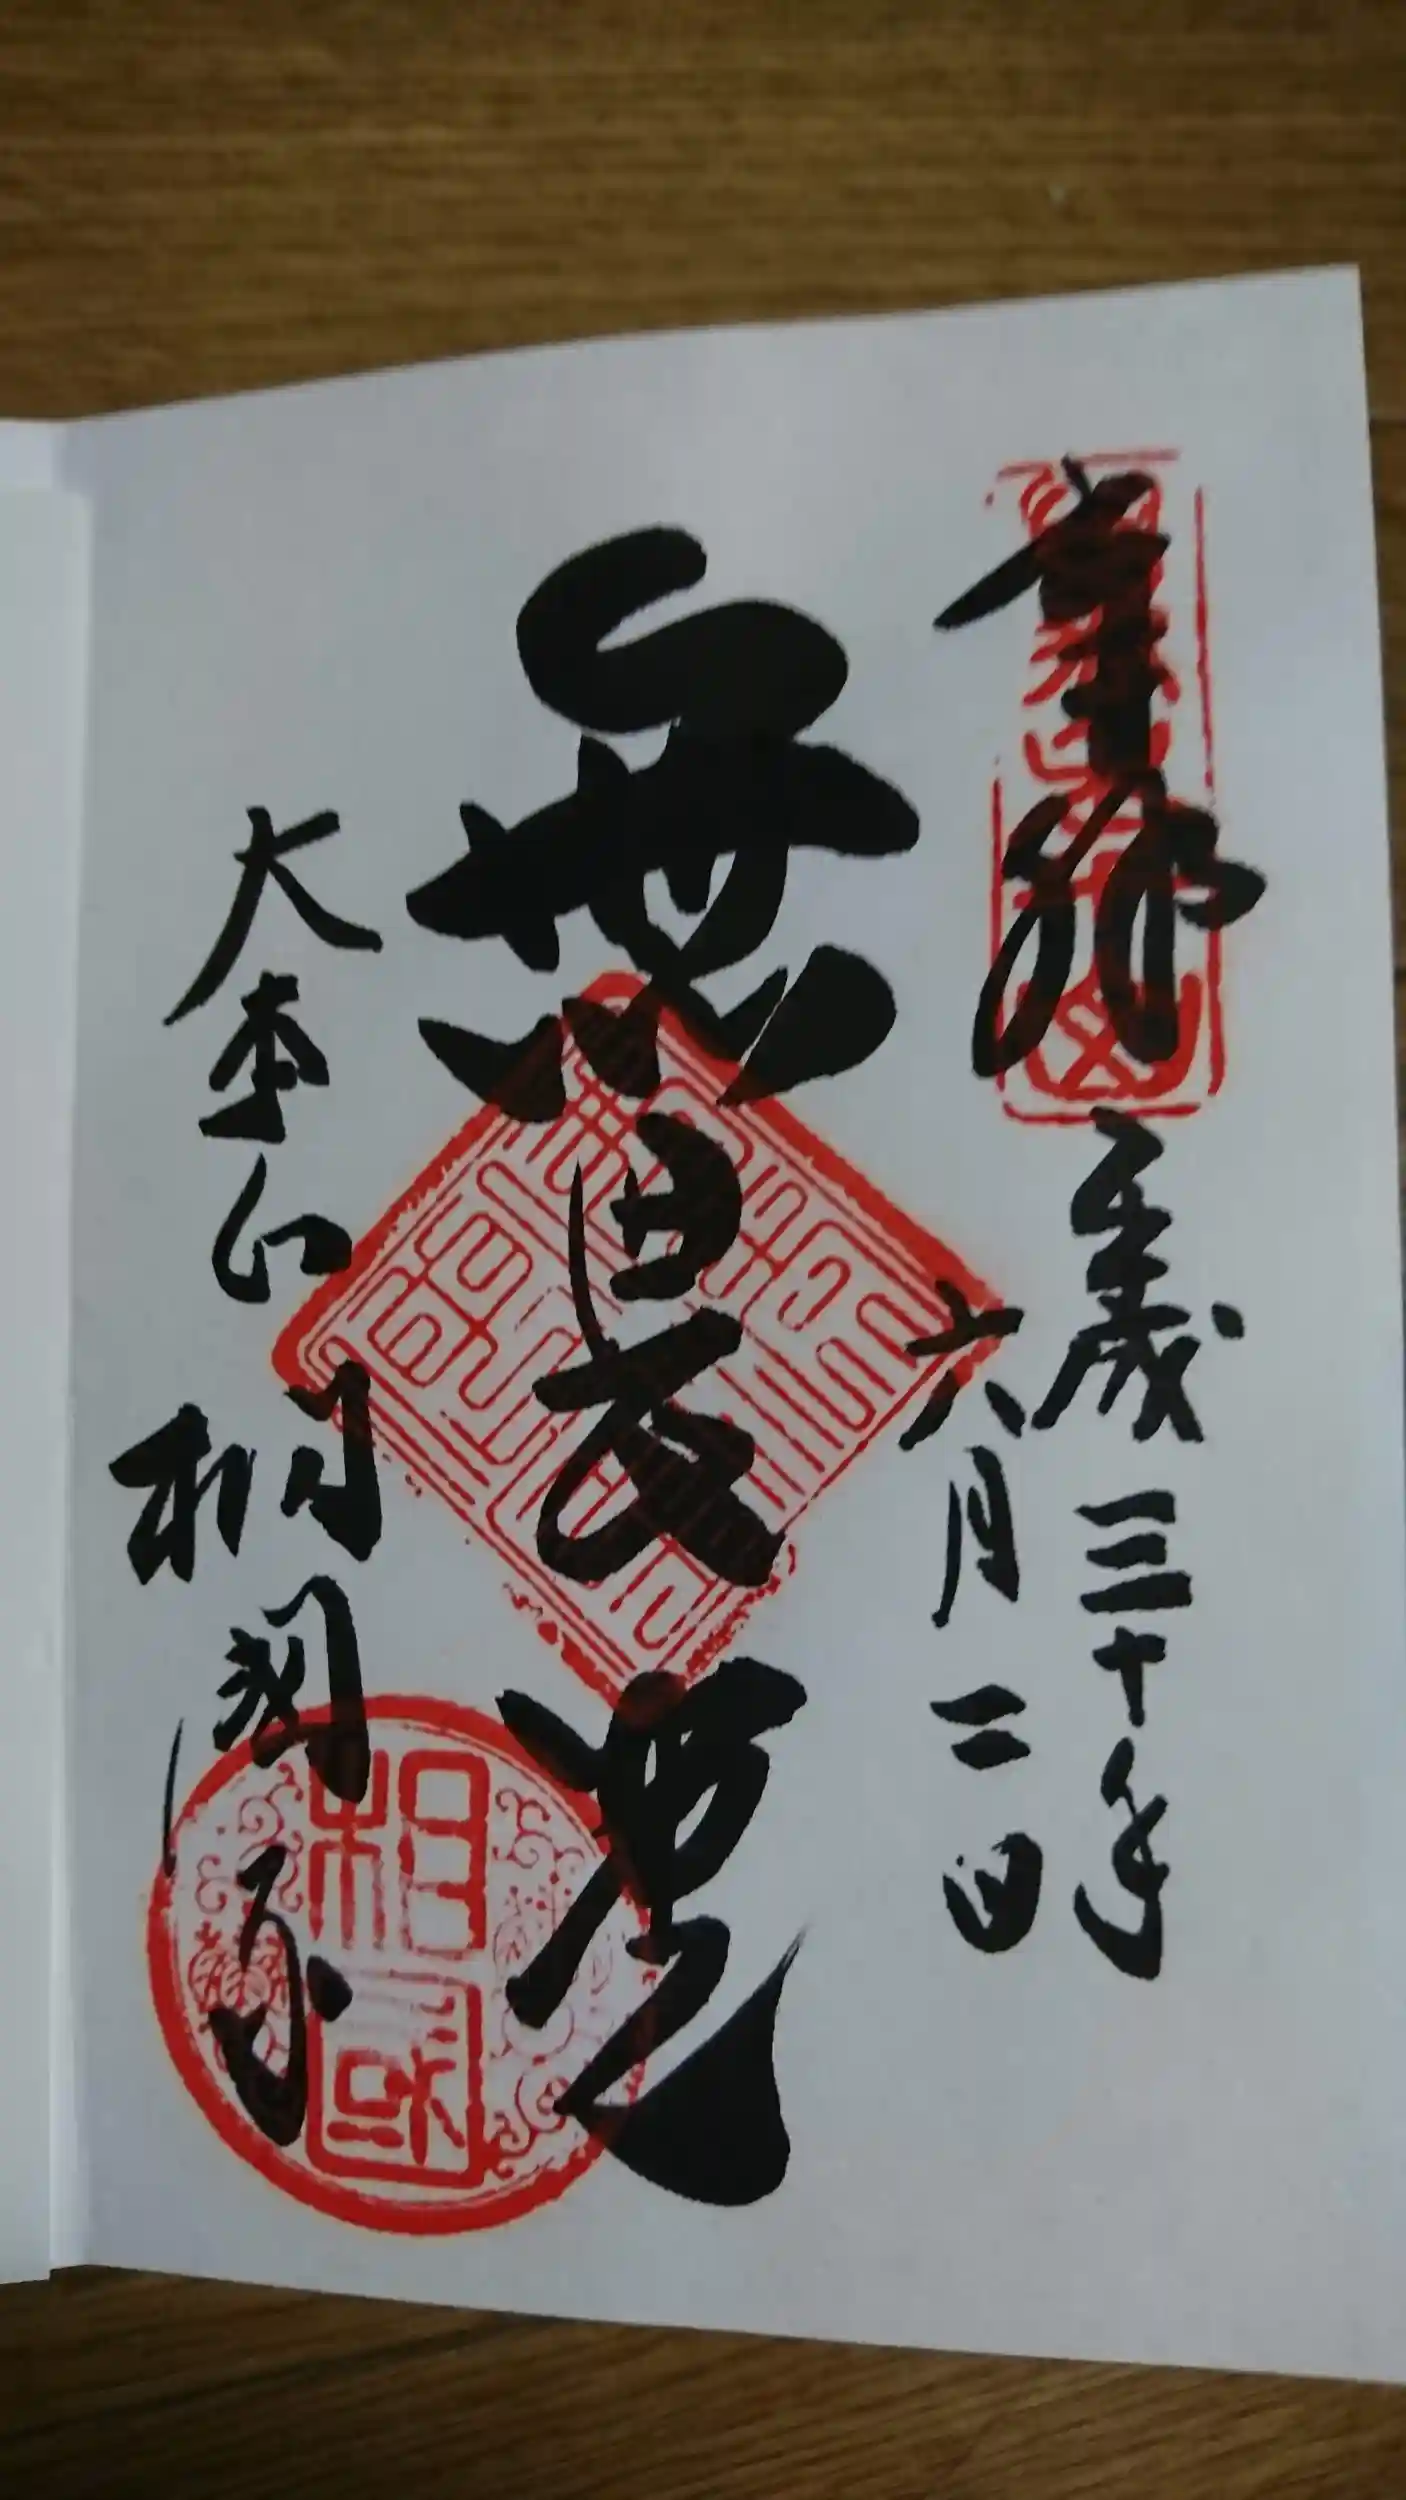 奉拝
平成三十年
六月二日
無畏堂
大本山
相國寺
相國